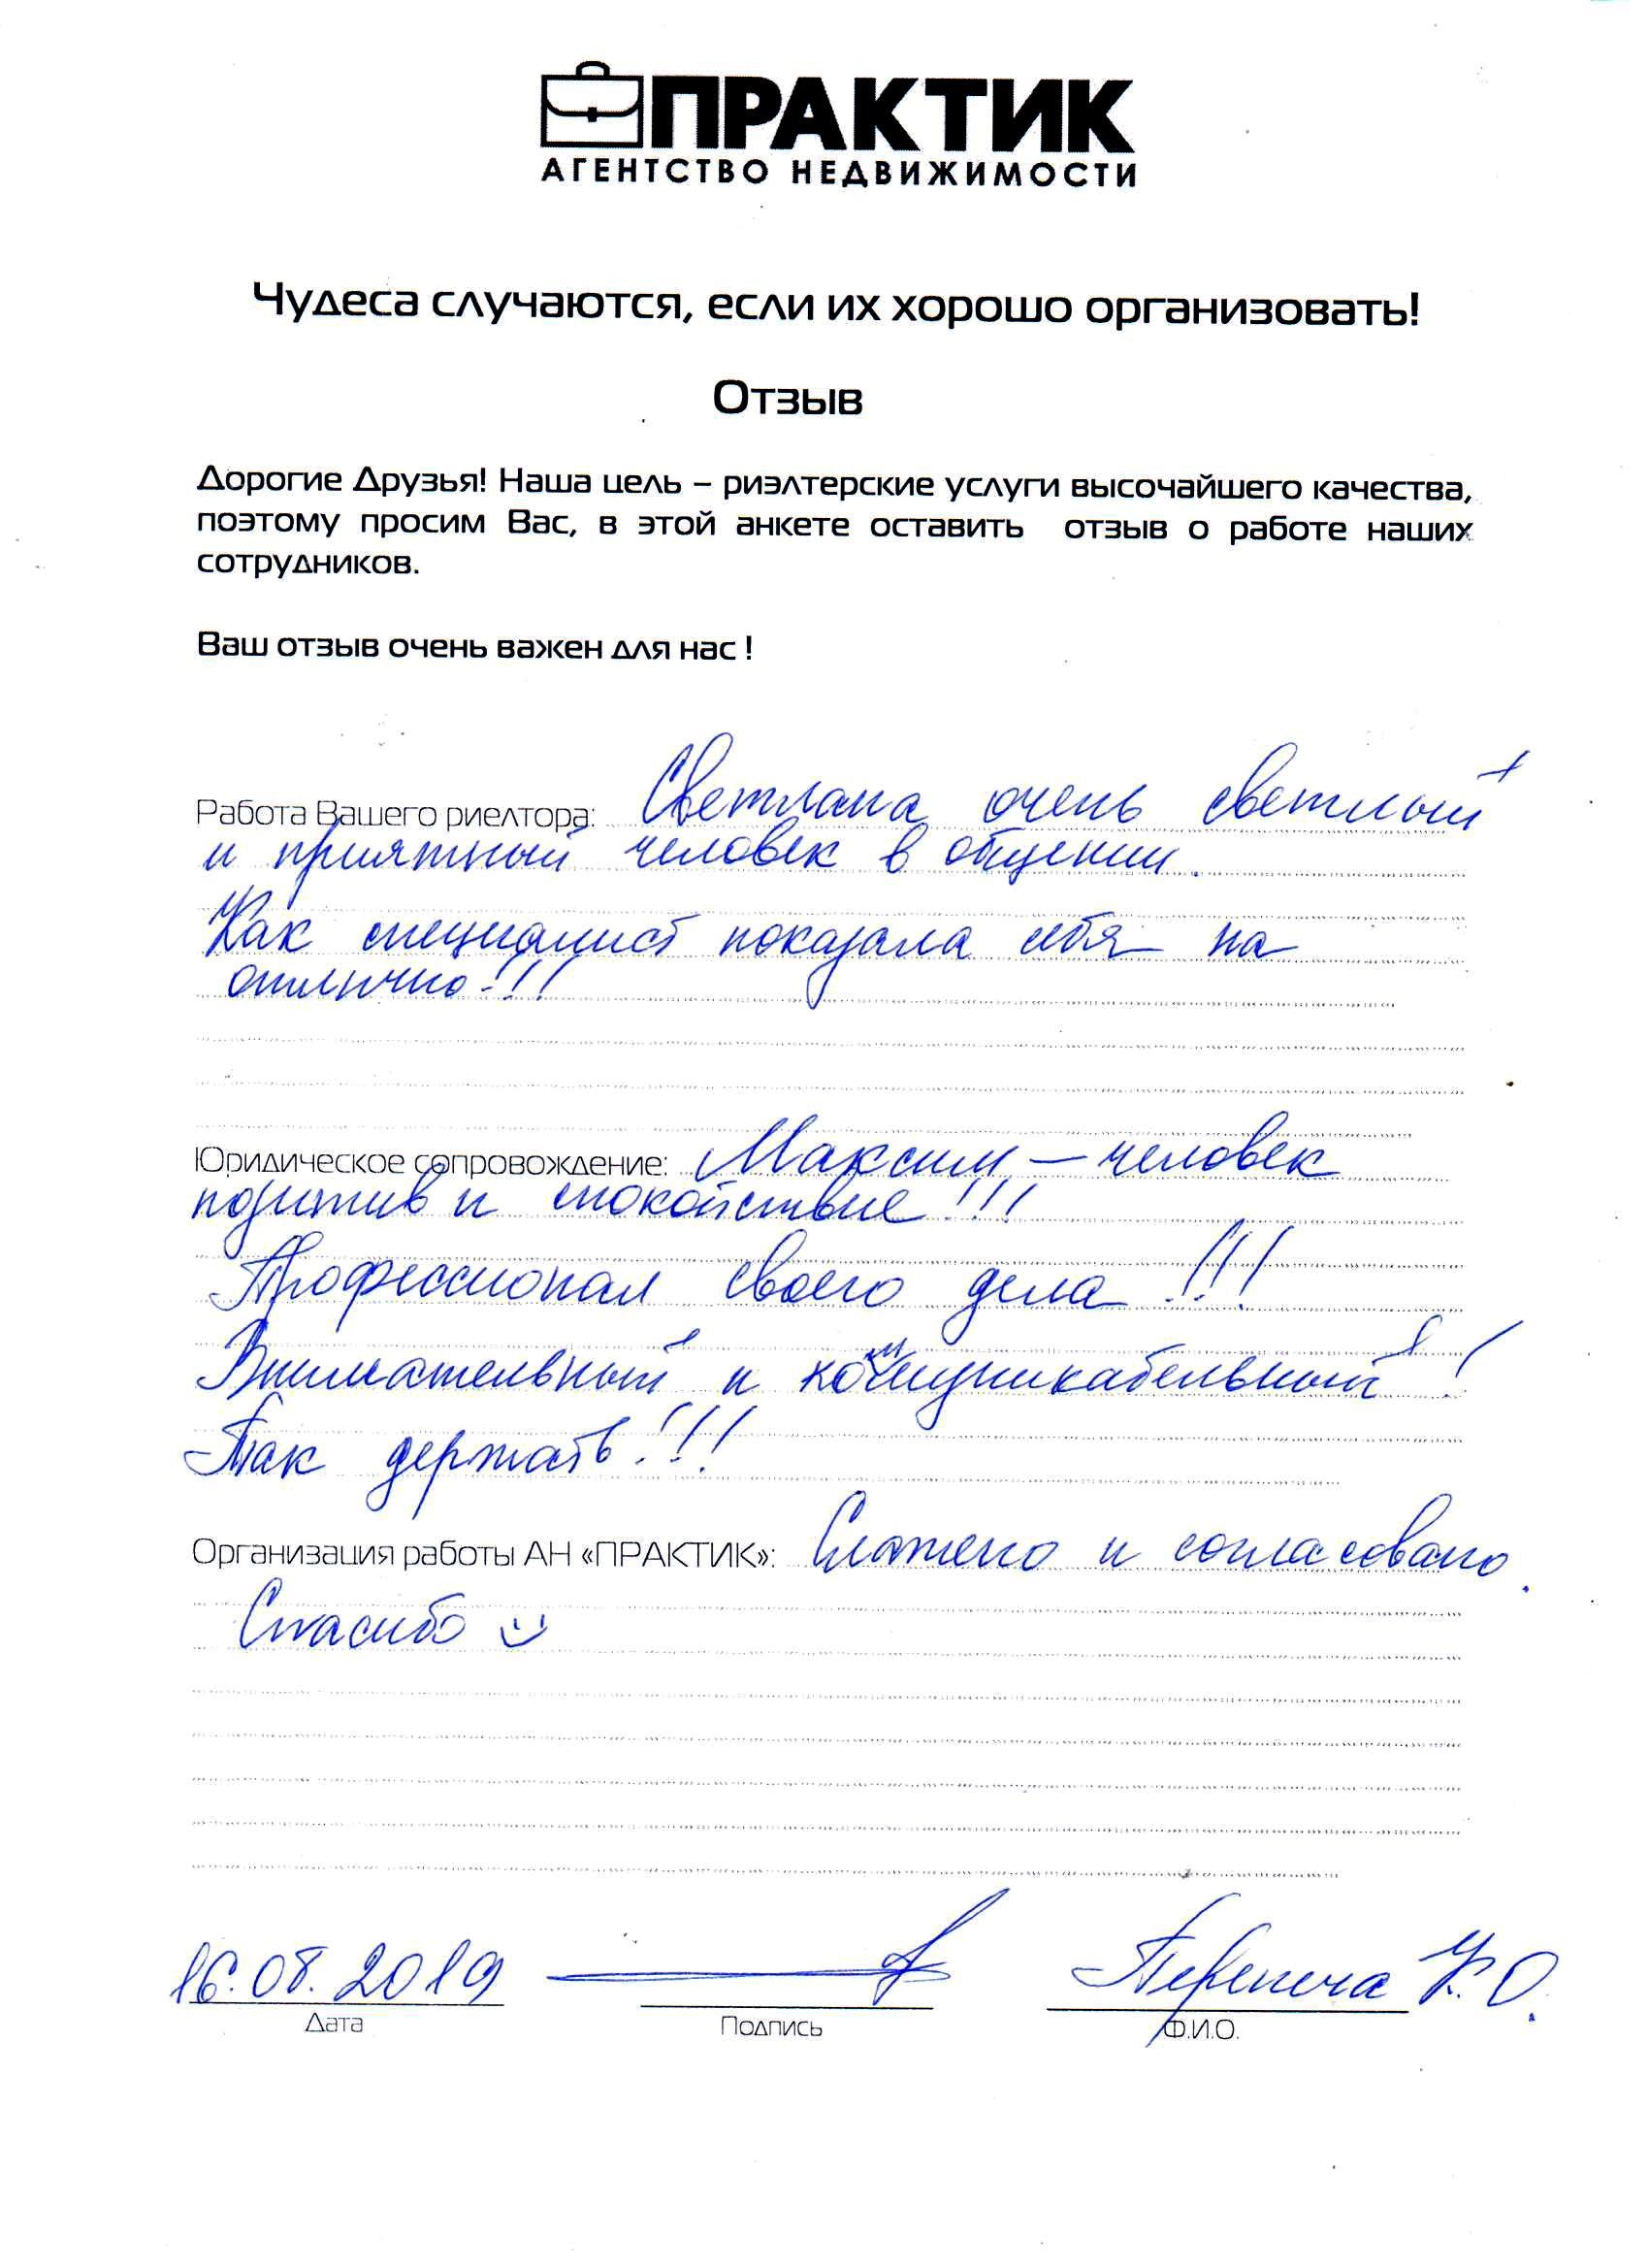 ПРАКТИК
АГЕНТСТВО НЕДВИЖИМОСТИ
Чудеса случаются, если их хорошо организовать!
Отзыв
Дорогие Друзья! Наша цель – риэлтерские услуги высочайшего качества,
поэтому просим Вас, в этой анкете оставить отзыв о работе наших
сотрудников.
Ваш отзыв очень важен для нас !
Работа Вашего риелтора: Светлана очень светлый
и приятный человек в общении.
Как специалист показала себя на
отлично!!!
Юридическое сопровождение: Максим – человек
позитив и спокойствие!!!
Профессионал своего дела!!!
Внимательный и коммуникабельный!
Так держать!!!
Организация работы АН «ПРАКТИК»: Слажено и согласовано.
Спасибо
16.08.2019 Перепеча К. О.
Дата Подпись Ф.И.О.